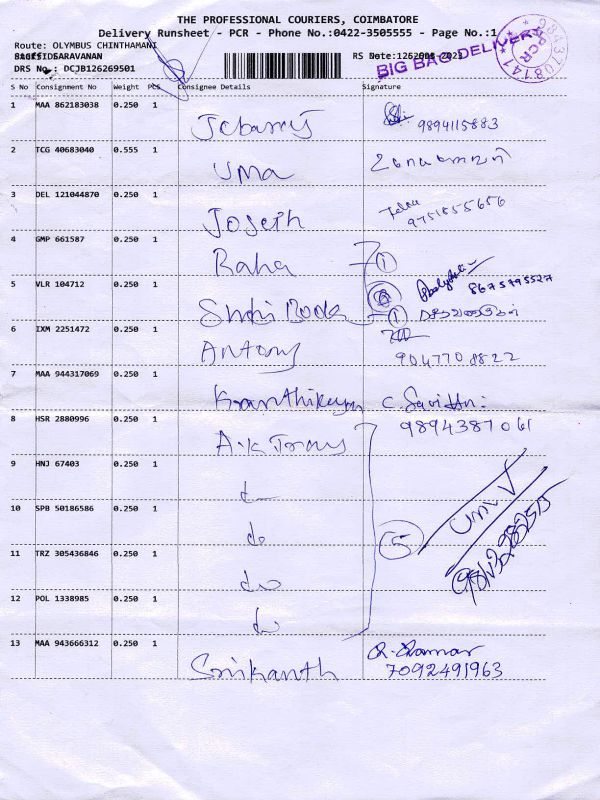 THE PROFESSIONAL COURIERS, COIMBATORE
Delivery Runsheet - PCR - Phone No.:0422-3505555 - Page No.:1
Route: OLYMBUS CHINTHAMANI
SARAVANAN
DRS No : DCJB126269501
BIG BAG DELIVERY
PCR
9843708141
S No Consignment No Weight PCS Consignee Details Signature
1 MAA 862183038 0.250 1 Jebaraj 9894115883
2 TCG 40683040 0.555 1 Uma
3 DEL 121044870 0.250 1 Joseph 9751855656
4 GMP 661587 0.250 1 Raha 1
5 VLR 104712 0.250 1 8675795527
1
6 IXM 2251472 0.250 1 Antony 9047708822
7 MAA 944317069 0.250 1 Karthikeyan C. Savithri
9894387061
8 HSR 2880996 0.250 1
9 HNJ 67403 0.250 1 do
10 SPB 50186586 0.250 1 do
5
11 TRZ 305436846 0.250 1 do
12 POL 1338985 0.250 1 do
13 MAA 943666312 0.250 1 Srikanth
7092491963